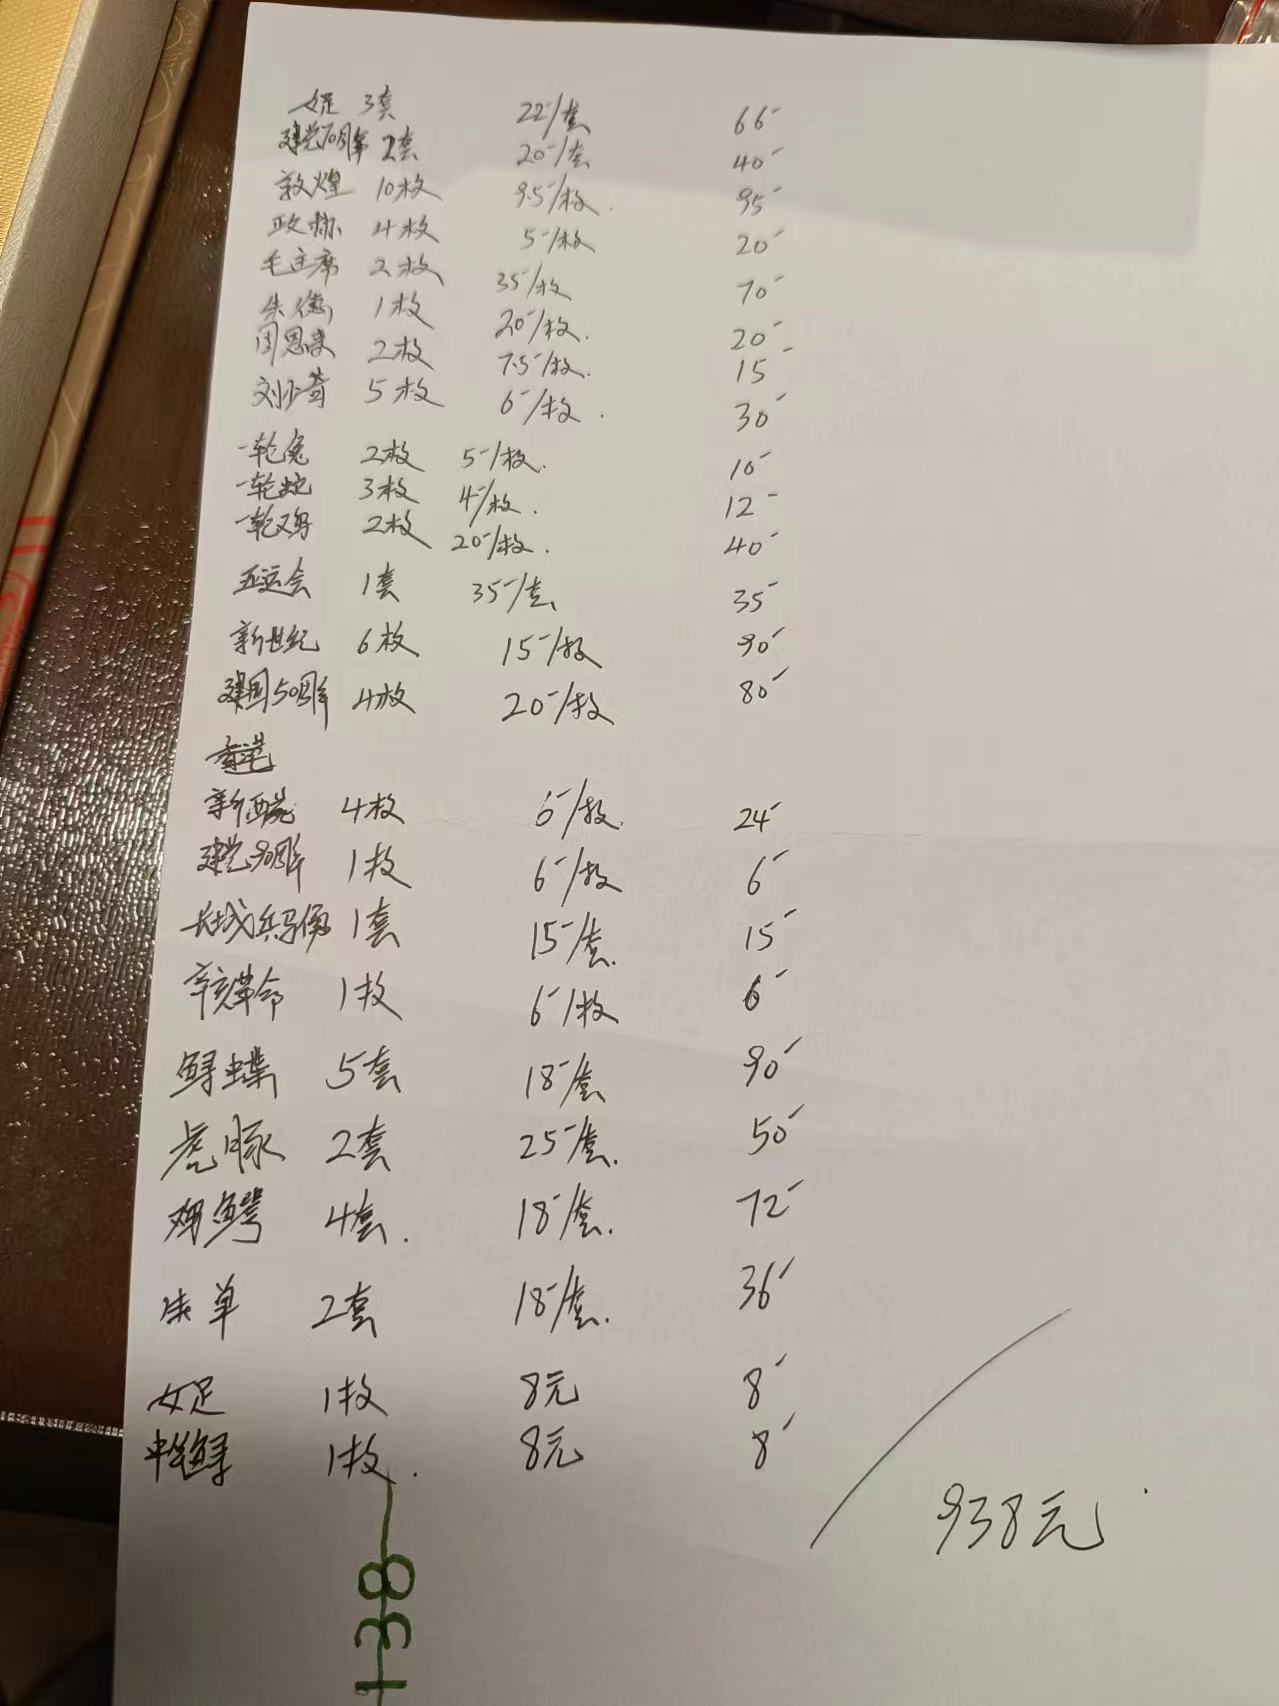 女足 3套 22-/套 66-
建党70周年 2套 20-/套 40-
敦煌 10枚 9.5-/枚. 95-
政协 4枚 5-/枚 20-
毛主席 2枚 35-/枚 70-
朱德 1枚 20-/枚. 20-
周恩来 2枚 7.5-/枚. 15-
刘少奇 5枚 6-/枚. 30-
一轮兔 2枚 5-/枚. 10-
一轮蛇 3枚 4-/枚. 12-
一轮鸡 2枚 20-/枚. 40-
亚运会 1套 35-/套 35-
新世纪 6枚 15-/枚 90-
建国50周年 4枚 20-/枚 80-
香港
新西藏 4枚 6-/枚. 24-
建党90周年 1枚 6-/枚 6-
长城兵马俑 1套 15-/套. 15-
辛亥革命 1枚 6-/枚 6-
鲟蝶 5套 18-/套 90-
虎豚 2套 25-/套. 50-
鸡鳄 4套. 18-/套. 72-
朱单 2套 18-/套. 36-
女足 1枚 8元 8-
中华鲟 1枚. 8元 8-
938元
138